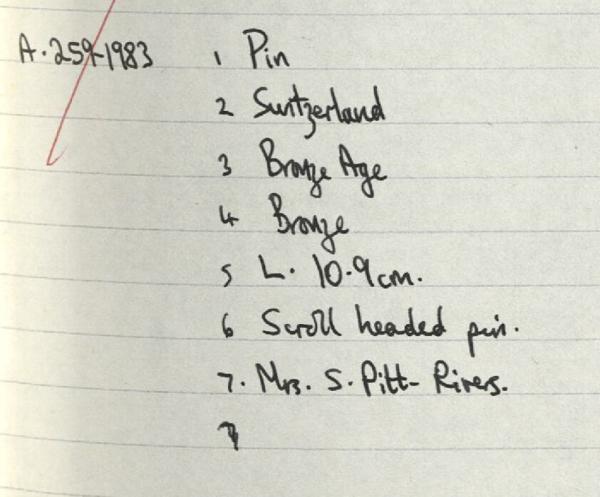 A.259-1983 1 Pin
2 Switzerland
3 Bronze Age
4 Bronze
5 L. 10.9cm.
6 Scroll headed pin.
7. Mrs. S. Pitt-Rivers.